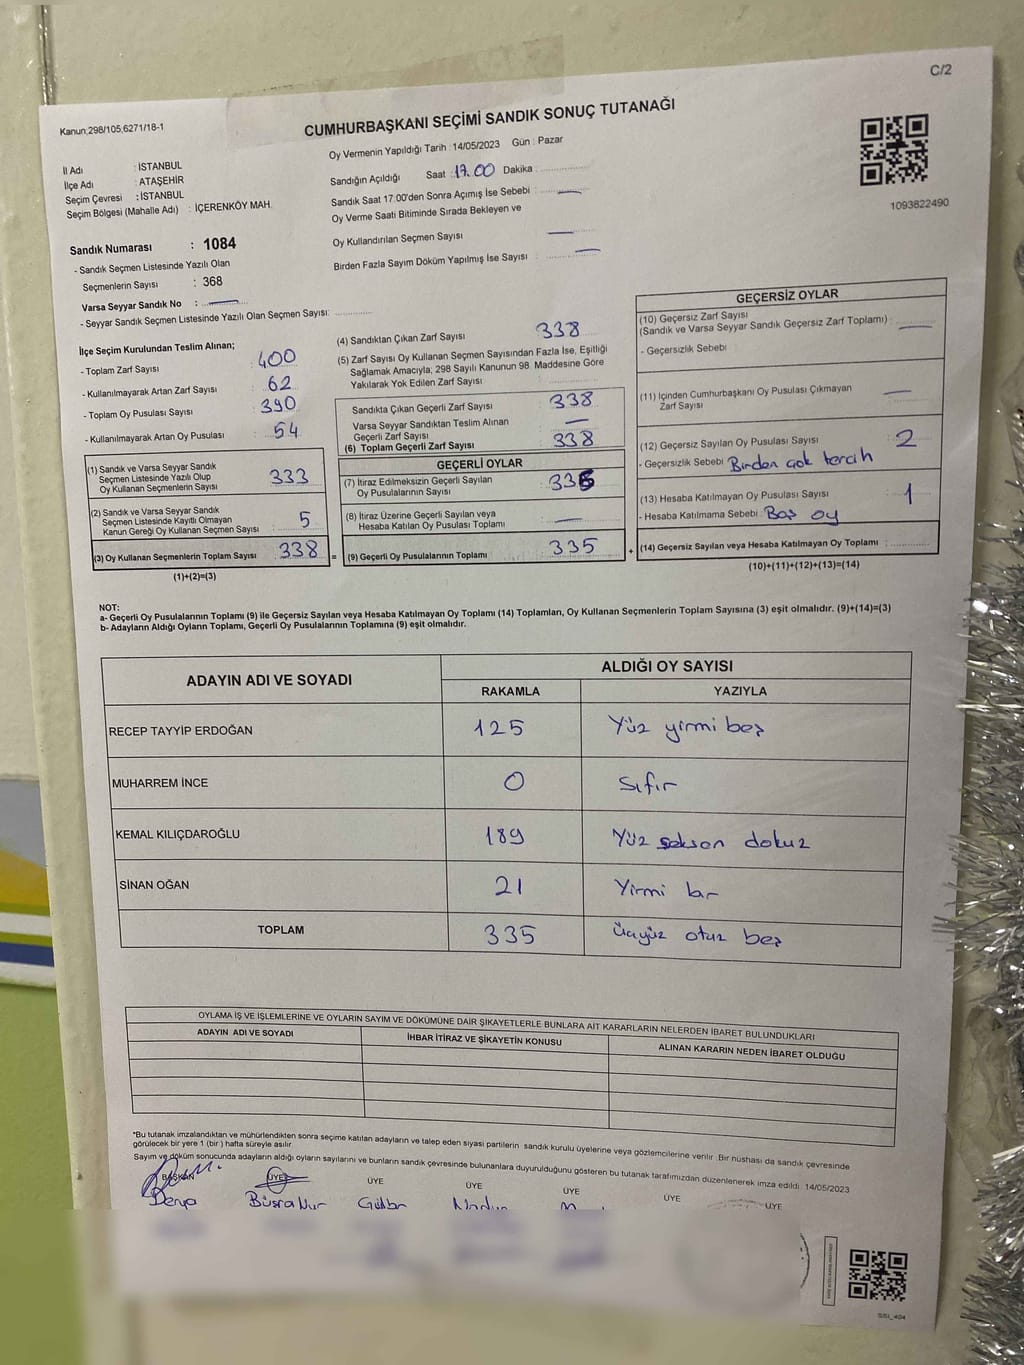 C/2
Kanun,298/105;6271/18-1
CUMHURBAŞKANI SEÇİMİ SANDIK SONUÇ TUTANAĞI
İl Adı : İSTANBUL
İlçe Adı : ATAŞEHİR
Seçim Çevresi : İSTANBUL
Seçim Bölgesi (Mahalle Adı) : İÇERENKÖY MAH.
Oy Vermenin Yapıldığı Tarih : 14/05/2023 Gün : Pazar
Sandığın Açıldığı Saat : 17.00 Dakika :
Sandık Saat 17:00'den Sonra Açımış İse Sebebi : —
Oy Verme Saati Bitiminde Sırada Bekleyen ve
Oy Kullandırılan Seçmen Sayısı —
Birden Fazla Sayım Döküm Yapılmış İse Sayısı : —
1093822490
Sandık Numarası : 1084
- Sandık Seçmen Listesinde Yazılı Olan
Seçmenlerin Sayısı : 368
Varsa Seyyar Sandık No : —
- Seyyar Sandık Seçmen Listesinde Yazılı Olan Seçmen Sayısı:
İlçe Seçim Kurulundan Teslim Alınan;
- Toplam Zarf Sayısı : 400
- Kullanılmayarak Artan Zarf Sayısı : 62
- Toplam Oy Pusulası Sayısı : 390
- Kullanılmayarak Artan Oy Pusulası : 54
(1) Sandık ve Varsa Seyyar Sandık
Seçmen Listesinde Yazılı Olup
Oy Kullanan Seçmenlerin Sayısı : 333
(2) Sandık ve Varsa Seyyar Sandık
Seçmen Listesinde Kayıtlı Olmayan
Kanun Gereği Oy Kullanan Seçmen Sayısı : 5
(3) Oy Kullanan Seçmenlerin Toplam Sayısı : 338
(1)+(2)=(3)
(4) Sandıktan Çıkan Zarf Sayısı : 338
(5) Zarf Sayısı Oy Kullanan Seçmen Sayısından Fazla İse, Eşitliği
Sağlamak Amacıyla; 298 Sayılı Kanunun 98. Maddesine Göre
Yakılarak Yok Edilen Zarf Sayısı :
Sandıkta Çıkan Geçerli Zarf Sayısı : 338
Varsa Seyyar Sandıktan Teslim Alınan
Geçerli Zarf Sayısı : —
(6) Toplam Geçerli Zarf Sayısı : 338
GEÇERLİ OYLAR
(7) İtiraz Edilmeksizin Geçerli Sayılan
Oy Pusulalarının Sayısı : 335
(8) İtiraz Üzerine Geçerli Sayılan veya
Hesaba Katılan Oy Pusulası Toplamı : —
= (9) Geçerli Oy Pusulalarının Toplamı : 335 +
GEÇERSİZ OYLAR
(10) Geçersiz Zarf Sayısı
(Sandık ve Varsa Seyyar Sandık Geçersiz Zarf Toplamı) : —
- Geçersizlik Sebebi :
(11) İçinden Cumhurbaşkanı Oy Pusulası Çıkmayan
Zarf Sayısı —
(12) Geçersiz Sayılan Oy Pusulası Sayısı : 2
- Geçersizlik Sebebi : Birden çok tercih
(13) Hesaba Katılmayan Oy Pusulası Sayısı : 1
- Hesaba Katılmama Sebebi : Boş oy
(14) Geçersiz Sayılan veya Hesaba Katılmayan Oy Toplamı :
(10)+(11)+(12)+(13)=(14)
NOT:
a- Geçerli Oy Pusulalarının Toplamı (9) ile Geçersiz Sayılan veya Hesaba Katılmayan Oy Toplamı (14) Toplamları, Oy Kullanan Seçmenlerin Toplam Sayısına (3) eşit olmalıdır. (9)+(14)=(3)
b- Adayların Aldığı Oyların Toplamı, Geçerli Oy Pusulalarının Toplamına (9) eşit olmalıdır.
ADAYIN ADI VE SOYADI ALDIĞI OY SAYISI
RAKAMLA YAZIYLA
RECEP TAYYİP ERDOĞAN 125 Yüz yirmi beş
MUHARREM İNCE 0 Sıfır
KEMAL KILIÇDAROĞLU 189 Yüz seksen dokuz
SİNAN OĞAN 21 Yirmi bir
TOPLAM 335 Üçyüz otuz beş
OYLAMA İŞ VE İŞLEMLERİNE VE OYLARIN SAYIM VE DÖKÜMÜNE DAİR ŞİKAYETLERLE BUNLARA AİT KARARLARIN NELERDEN İBARET BULUNDUKLARI
ADAYIN ADI VE SOYADI İHBAR İTİRAZ VE ŞİKAYETİN KONUSU ALINAN KARARIN NEDEN İBARET OLDUĞU
*Bu tutanak imzalandıktan ve mühürlendikten sonra seçime katılan adayların ve talep eden siyasi partilerin sandık kurulu üyelerine veya gözlemcilerine verilir. Bir nüshası da sandık çevresinde
görülecek bir yere 1 (bir) hafta süreyle asılır.
Sayım ve döküm sonucunda adayların aldığı oyların sayılarını ve bunların sandık çevresinde bulunanlara duyurulduğunu gösteren bu tutanak tarafımızdan düzenlenerek imza edildi. 14/05/2023
BAŞKAN ÜYE ÜYE ÜYE ÜYE ÜYE ÜYE
Derya Büşra Nur
SSI_404